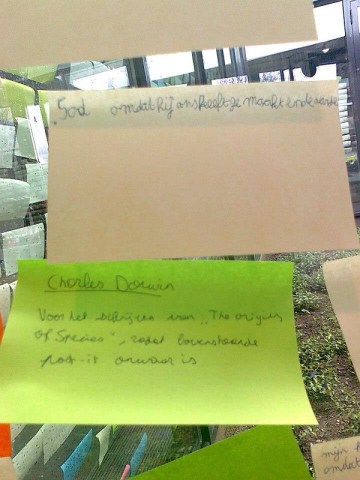 God omdat hij ons heeft gemaakt en de aarde
Charles Darwin
Voor het schrijven van "The origines
of Species", zodat bovenstaande
post-it onwaar is
mijn
omdat